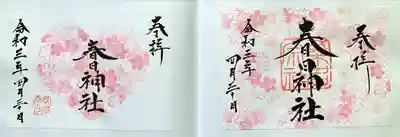 奉拝
春日神社
令和三年四月三十日
奉拝
春日神社
令和三年四月三十日